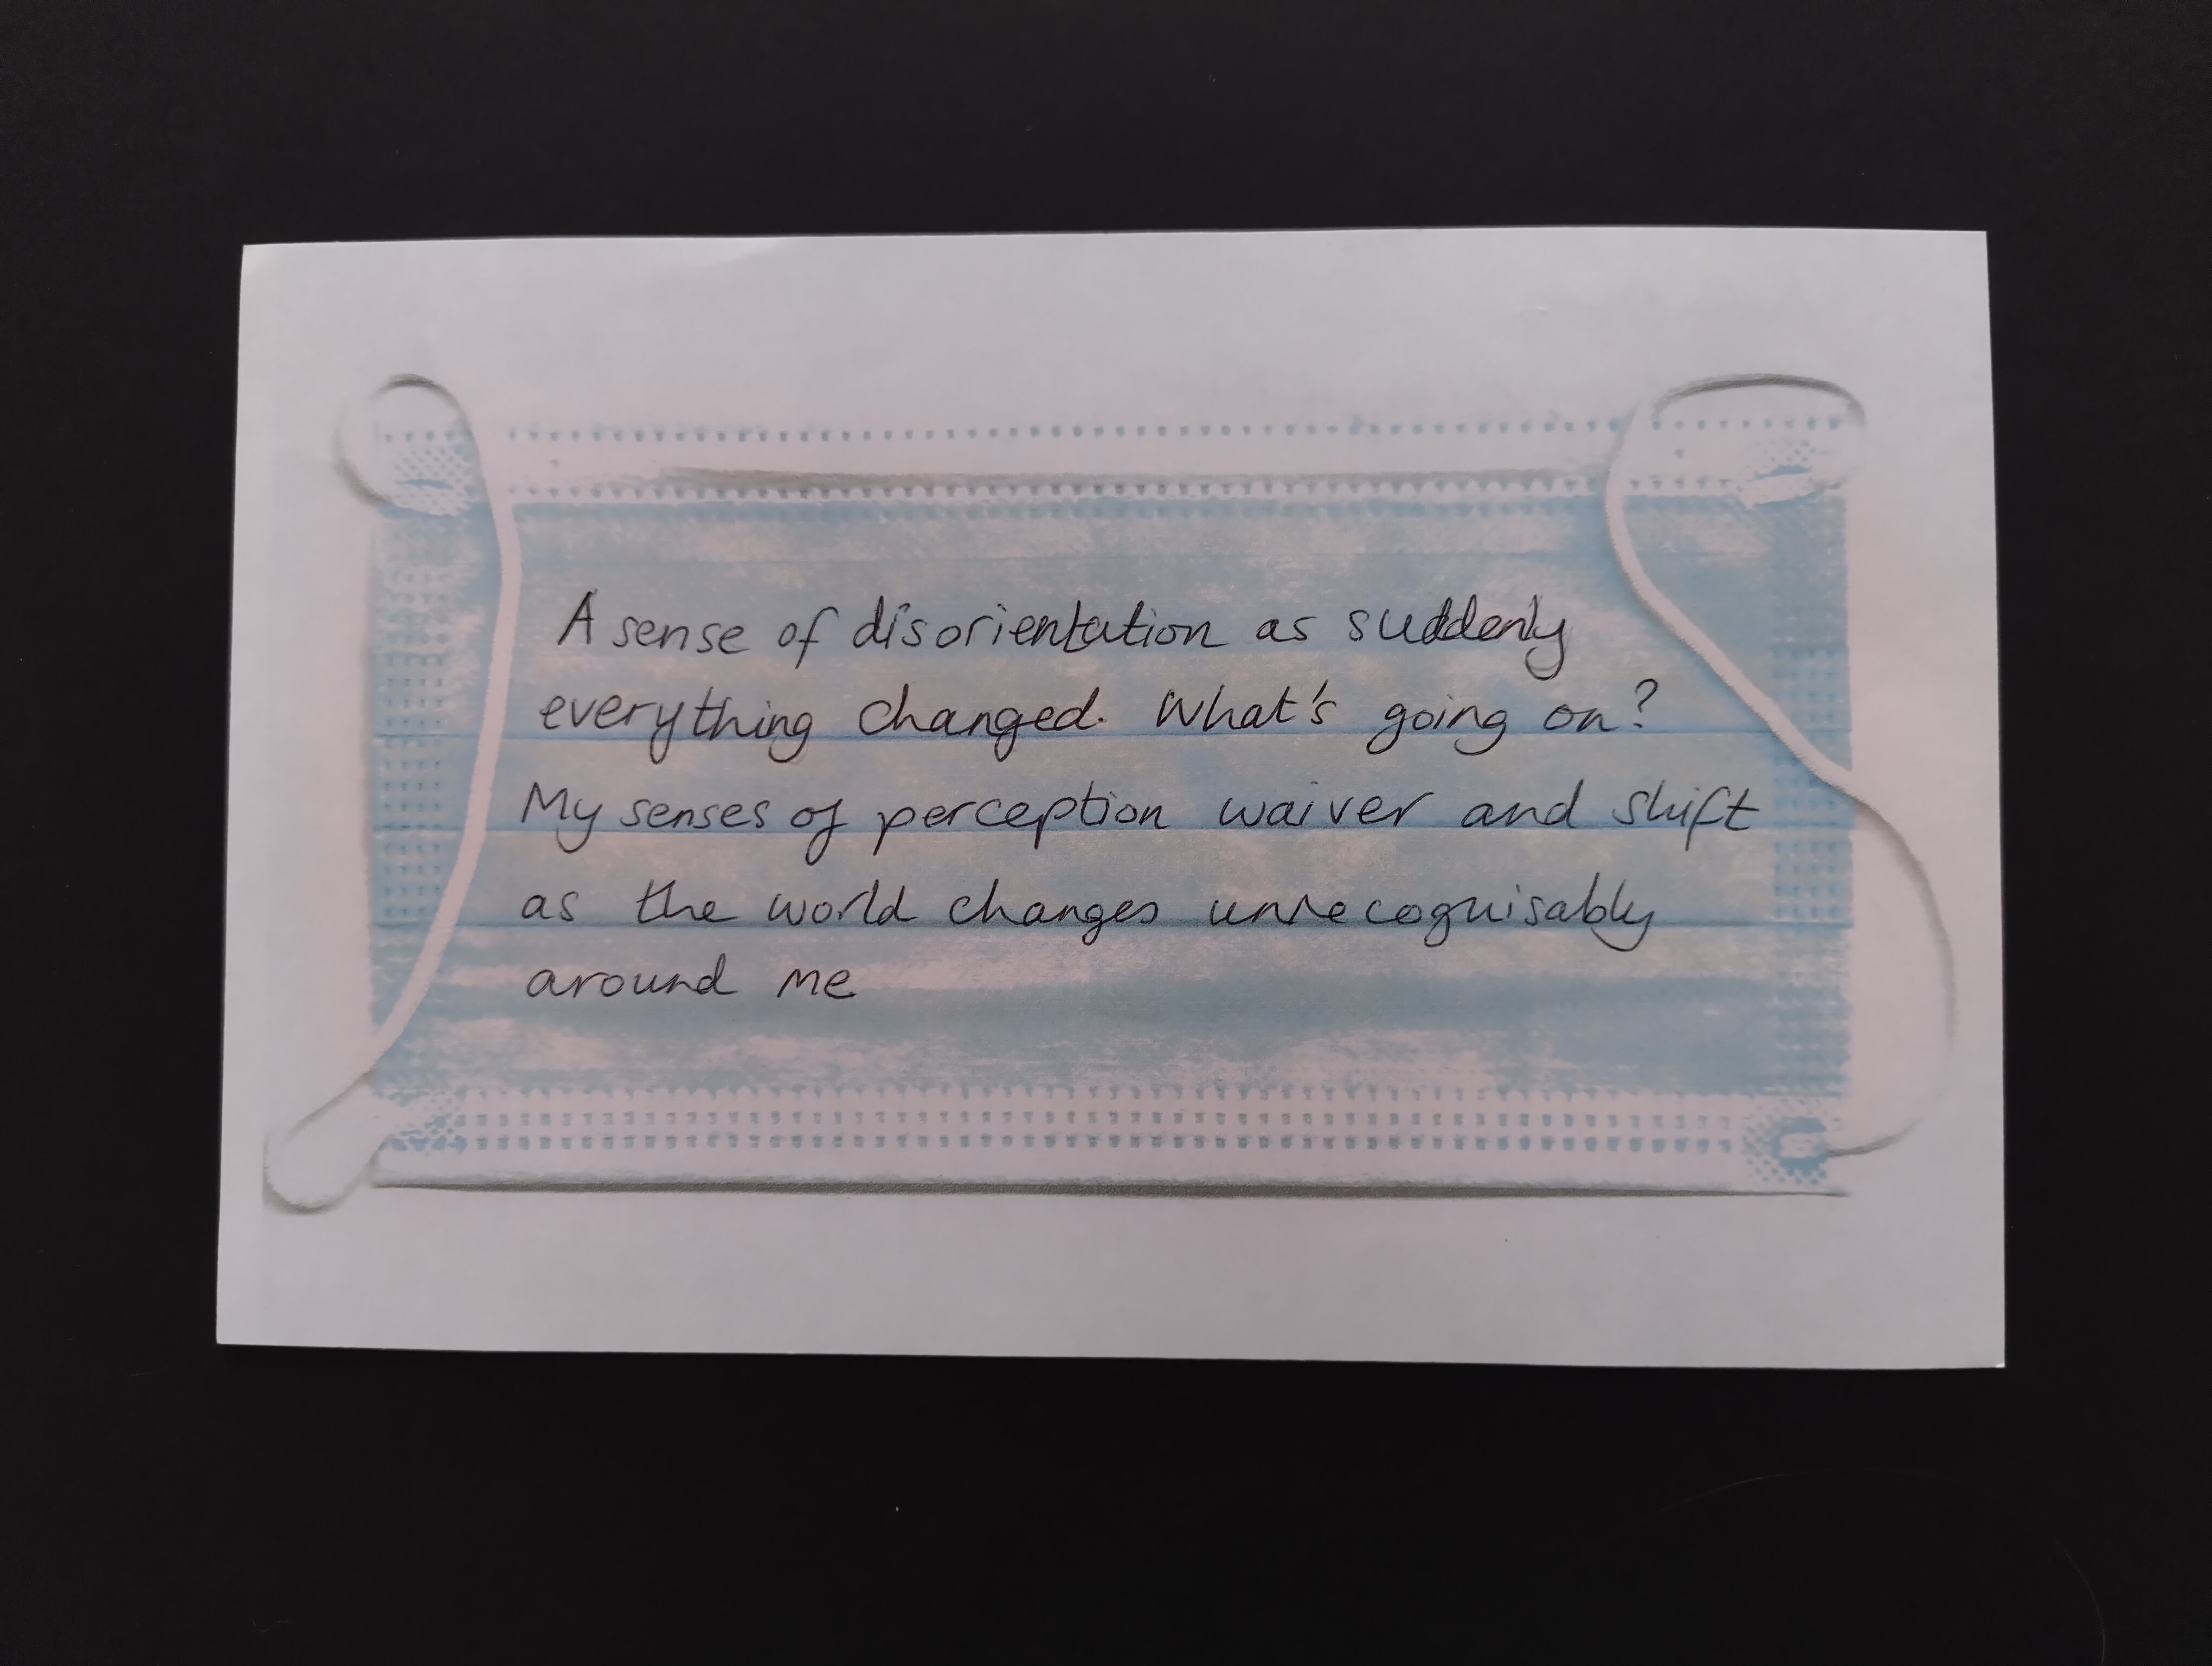 A sense of disorientation as suddenly
everything changed. What's going on?
My senses of perception waiver and shift
as the world changes unrecognisably
around me